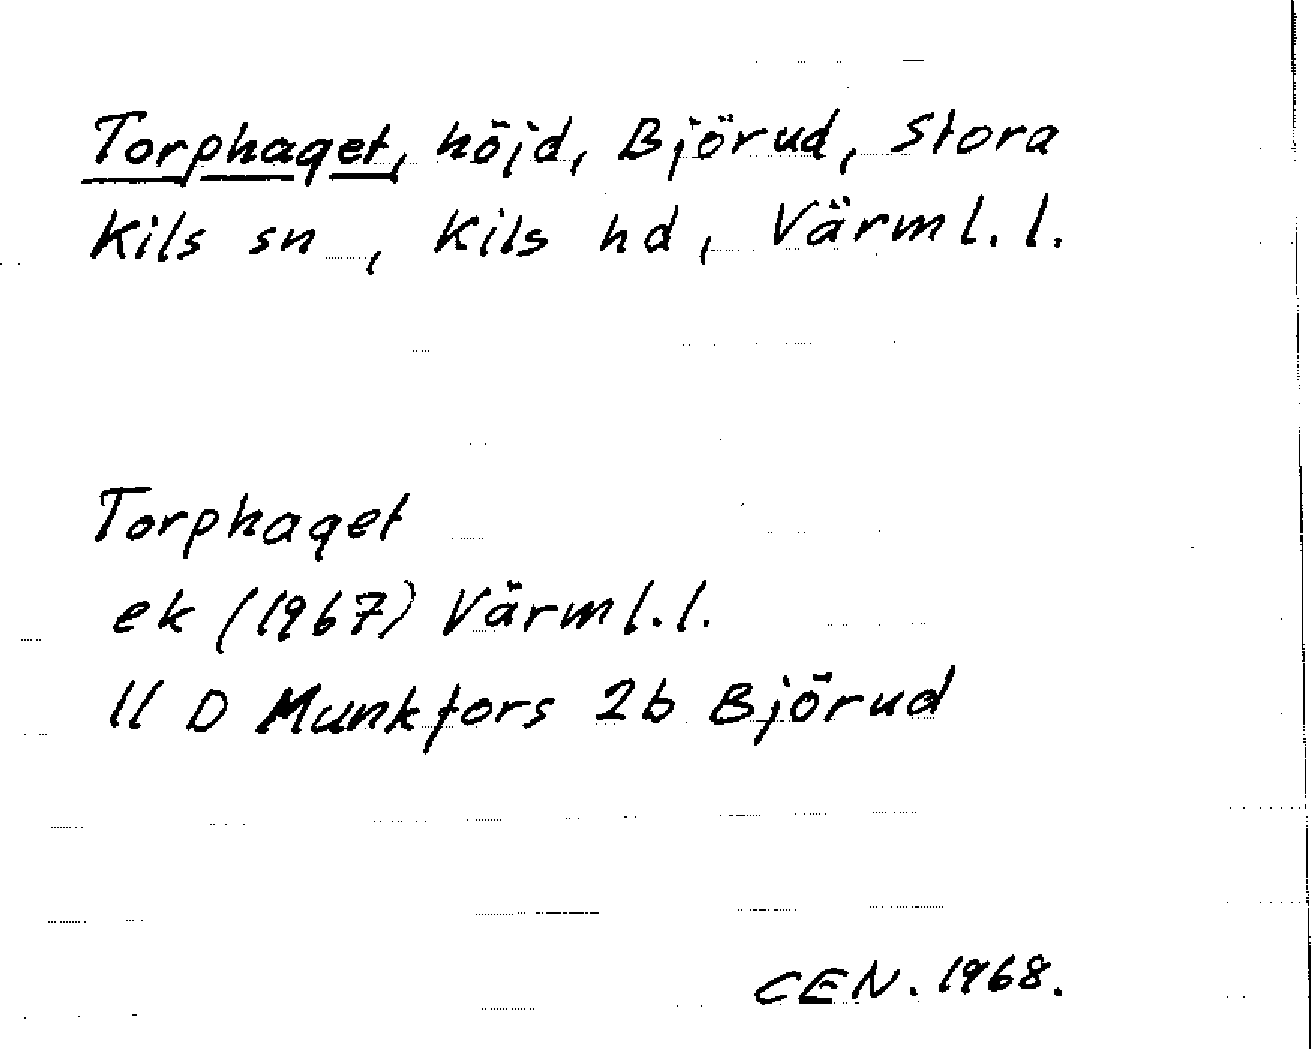 Torphaget, höjd, Björud, Stora
Kils sn, Kils hd, Värml. l.
Torphaget
ek (1967) Värml. l.
11 D Munkfors 2b Björud
CEN. 1968.